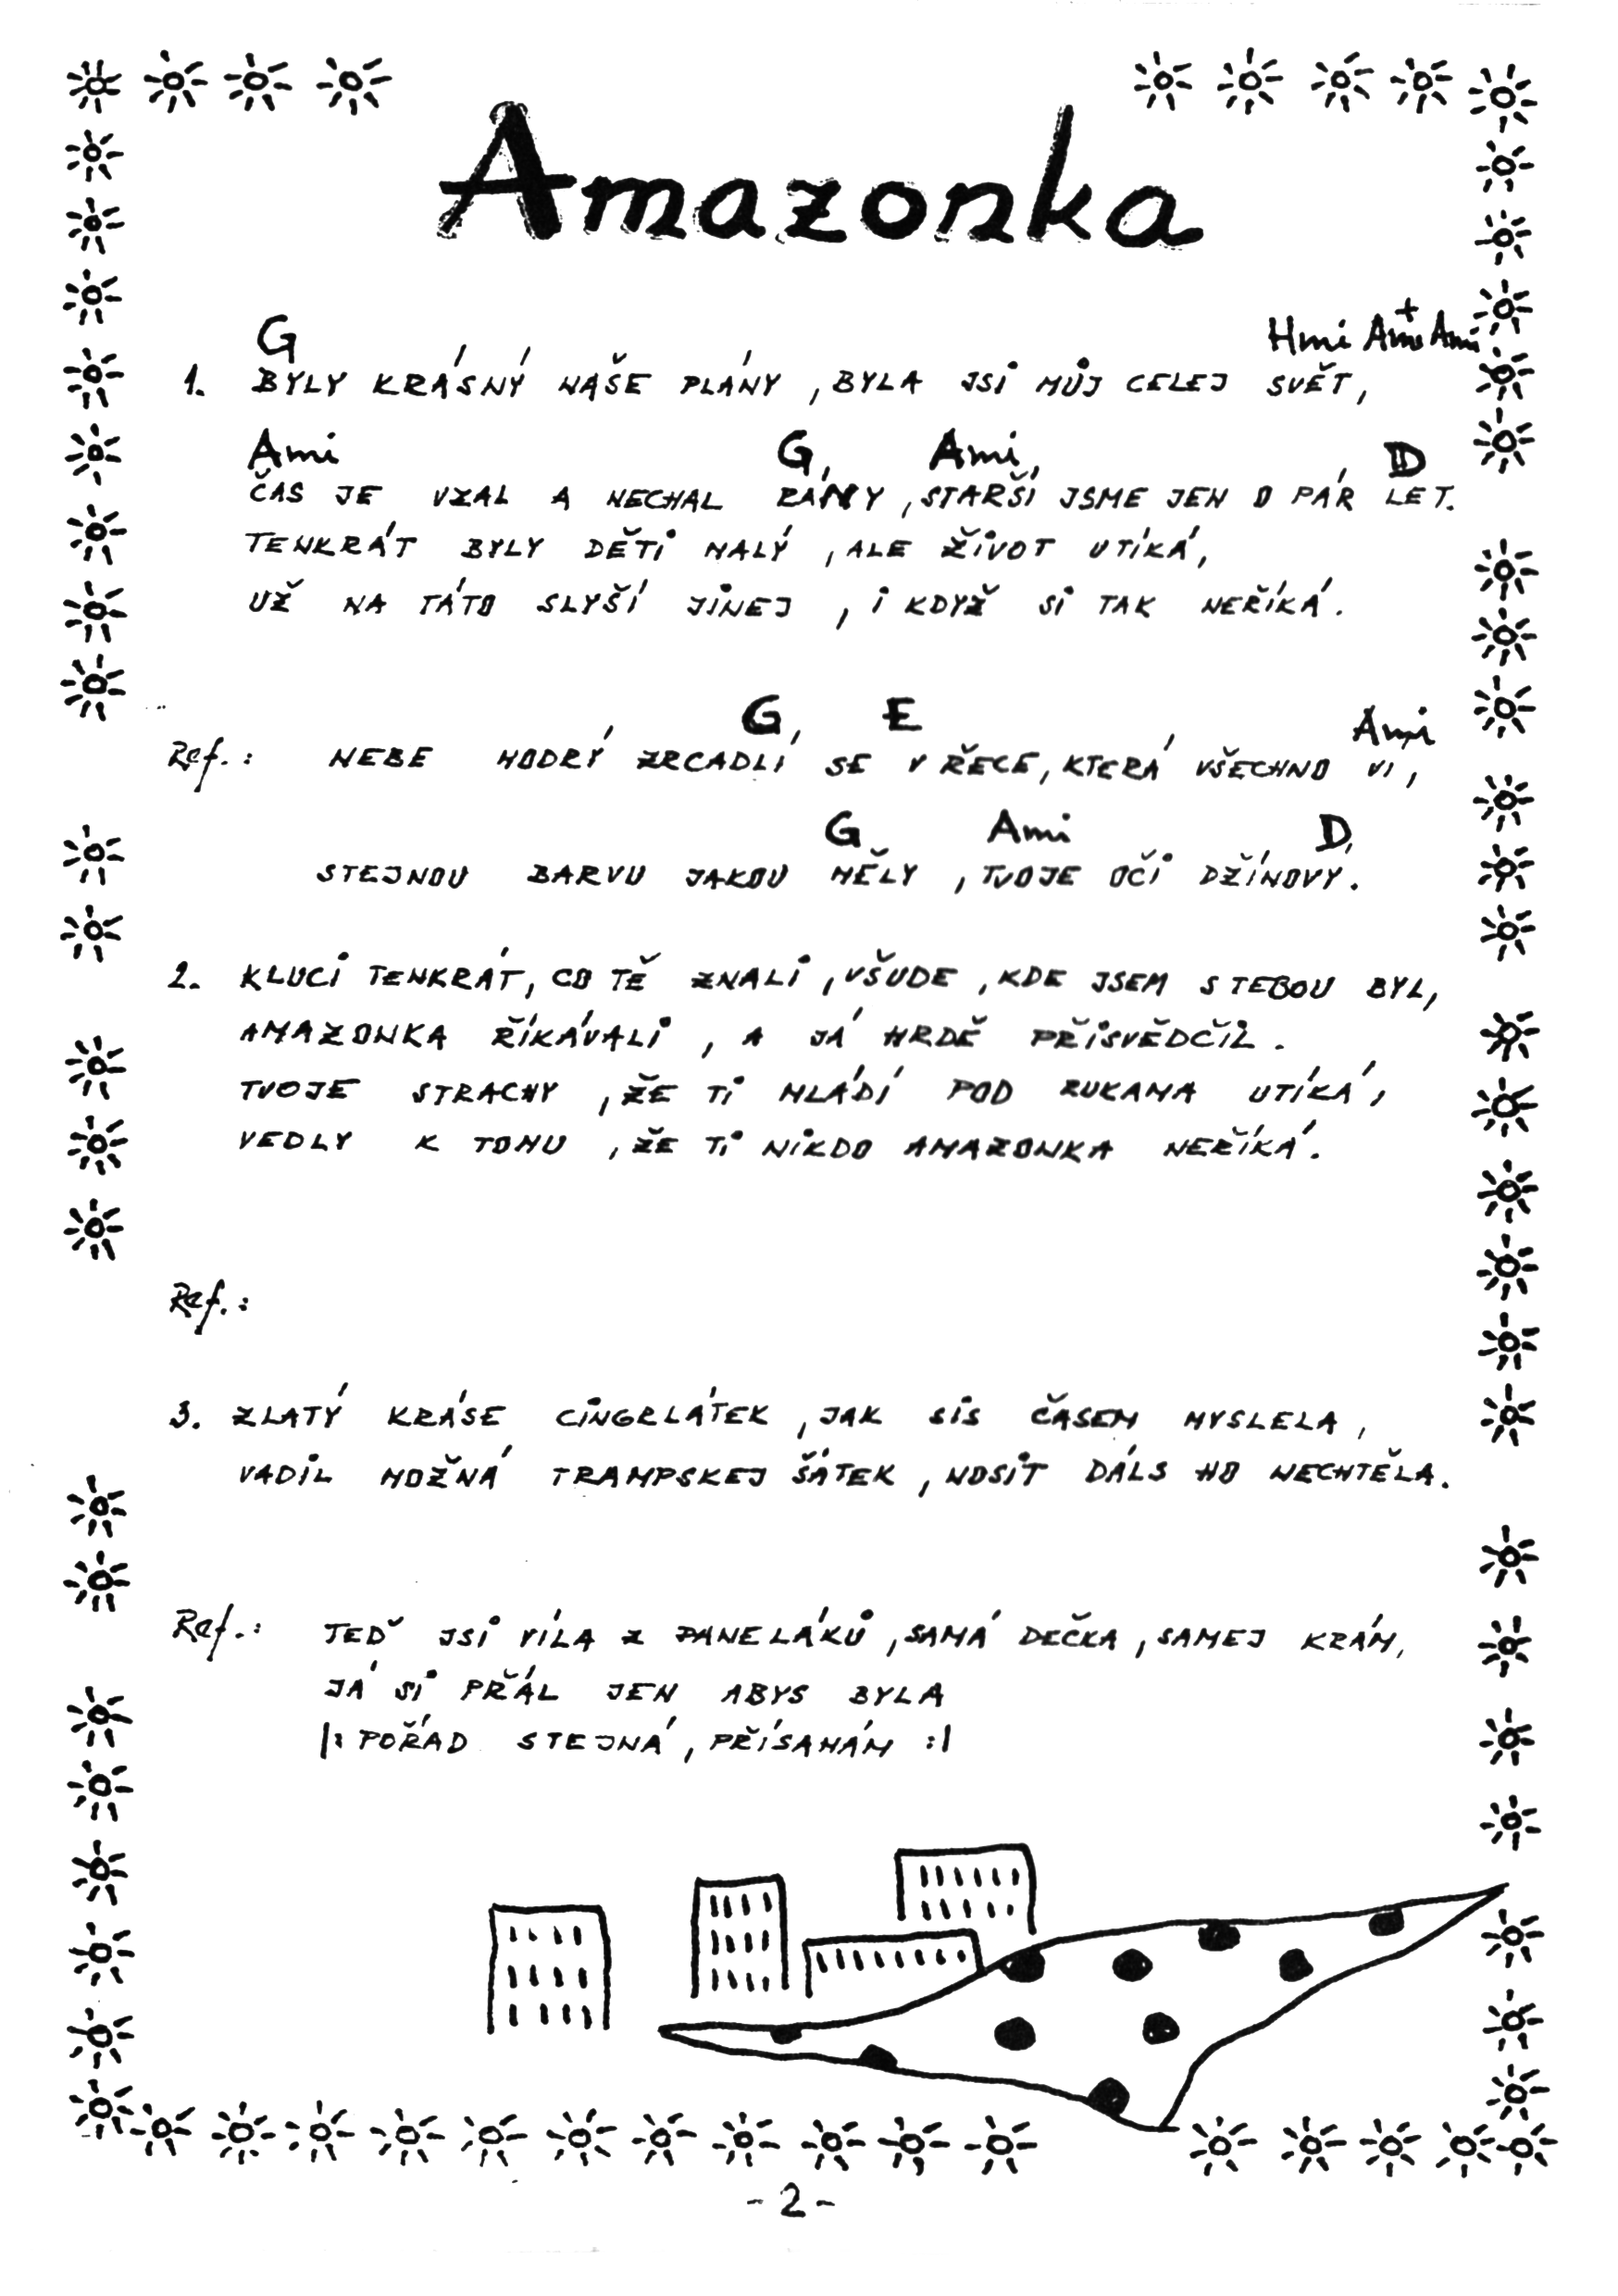 Amazonka
G Hmi Ami+ Ami
1. BYLY KRÁSNÝ NAŠE PLÁNY, BYLA JSI MŮJ CELEJ SVĚT,
Ami G Ami D
ČAS JE VZAL A NECHAL RÁNY, STARŠÍ JSME JEN O PÁR LET.
TENKRÁT BYLY DĚTI MALÝ, ALE ŽIVOT UTÍKÁ,
UŽ NA TÁTO SLYŠÍ JINEJ, I KDYŽ SI TAK NEŘÍKÁ.
G E Ami
Ref.: NEBE MODRÝ ZRCADLÍ SE V ŘECE, KTERÁ VŠECHNO VÍ,
G Ami D
STEJNOU BARVU JAKOU MĚLY, TVOJE OČI DŽÍNOVÝ.
2. KLUCI TENKRÁT, CO TĚ ZNALI, VŠUDE, KDE JSEM S TEBOU BYL,
AMAZONKA ŘÍKÁVALI, A JÁ HRDĚ PŘISVĚDČIL.
TVOJE STRACHY, ŽE TI MLÁDÍ POD RUKAMA UTÍKÁ,
VEDLY K TOMU, ŽE TI NIKDO AMAZONKA NEŘÍKÁ.
Ref.:
3. ZLATÝ KRÁSE CINGRLÁTEK, JAK SIS ČASEM MYSLELA,
VADIL MOŽNÁ TRAMPSKEJ ŠÁTEK, NOSIT DÁLS HO NECHTĚLA.
Ref.: TEĎ JSI VÍLA Z PANELÁKŮ, SAMÁ DEČKA, SAMEJ KRÁM,
JÁ SI PŘÁL JEN ABYS BYLA
|: POŘÁD STEJNÁ, PŘÍSAHÁM :|
- 2 -